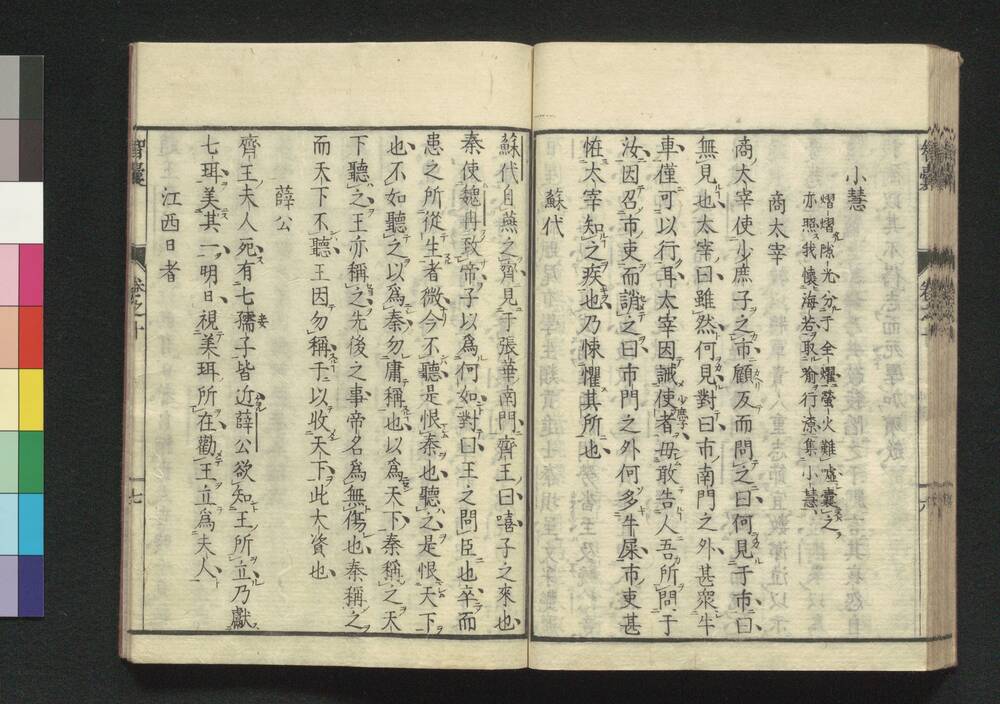 小慧
熠熠隙光分于全耀螢火難嘘囊之
亦照我懷海若取喻行潦集小慧
商太宰
商太宰使少庶子之市顧反而問之曰何見于市曰
無見也太宰曰雖然何見對曰市南門之外甚衆牛
車僅可以行耳太宰因誡使者毋敢告人吾所問于
汝因召市吏而誚之曰市門之外何多牛屎市吏甚
恠太宰知之疾也乃悚懼其所也
蘇代
蘇代自燕之齊見于張華南門齊王曰嘻子之來也
秦使魏冉致帝子以爲何如對曰王之問臣也卒而
患之所從生者微今不聽是恨秦也聽之是恨天下
也不如聽之以爲秦勿庸稱也以爲天下秦稱之天
下聽之王亦稱之先後之事帝名爲無傷也秦稱之
而天下不聽王因勿稱于以收天下此大資也
薛公
齊王夫人死有七孺子皆近薛公欲知王所立乃獻
七珥美其一明日視美珥所在勸王立爲夫人
江西日者
智囊
卷之十
七